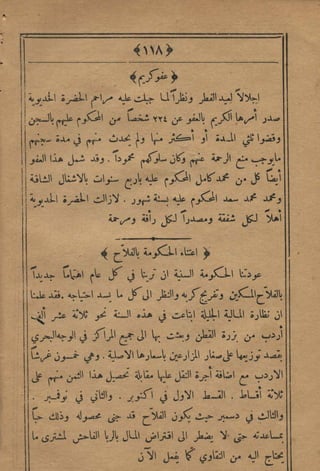 ﴿١١٨﴾
﴿ عفو كريم ﴾
اجلالاً لعيد الفطر ونظراً لما جبلت عليه مراحم الحضرة الخديوية
صدر أمرها الكريم بالعفو عن ٢٢٤ شخصاً من المحكوم عليهم بالسجن
وقضوا ثلثي المدة أو أكثر منها ولم يحدث منهم في مدة سجنهم
ما يوجب منع الرحمة عنهم وكان سلوكهم محموداً. وقد شمل هذا العفو
أيضاً كل من محمد كامل المحكوم عليه باربع سنوات بالاشغال الشاقة
ومحمد محمد سعد المحكوم عليه بستة شهور. لازالت الحضرة الخديوية
أهلاً لكل شفقة ومصدراً لكل رأفة ومرحمة
﴿ اعتناء الحكومة بالفلاح ﴾
عودتنا الحكومة السنية ان ترينا في كل عام اهتماماً جديداً
بالفلاح المسكين وتفريج كربه والنظر الى كل ما يسد احتياجه. فقد علمنا
ان نظارة المالية الجليلة ابتاعت في هذه السنة نحو ثلاثة عشر ألف
أردب من بزرة القطن وبعثت بها الى جميع المراكز في الوجه البحري
بقصد توزيعها على صغار المزارعين باسعارها الاصلية. وهي خمسون غرشاً
الاردب مع اضافة أجرة النقل عليها مقابلة تحصيل هذا الثمن منهم على
ثلاثة أقساط. القسط الاول في اكتوبر. والثاني في نوفمبر.
والثالث في دسمبر حيث يكون الفلاح قد جنى محصوله وذلك حباً
بمساعدته حتى لا يضطر الى اقتراض المال بالربا الفاحش لمشترى ما
يحتاج اليه من التقاوي كما يفعل الآن